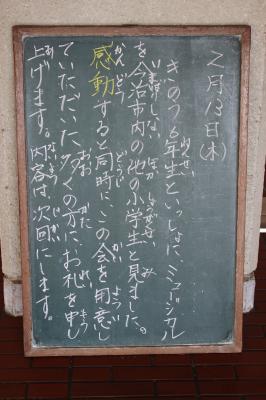 2月13日(木)
きのう6年生といっしょに、ミュージカル
を今治市内の他の小学生と見ました。
感動すると同時に、この会を用意し
ていただいた多くの方に、お礼を申し
上げます。内容は、次回にします。